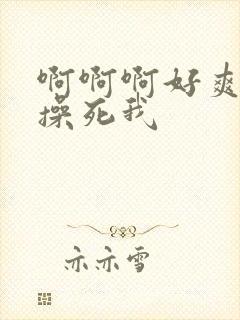 啊啊啊好爽
操死我
亦亦雪